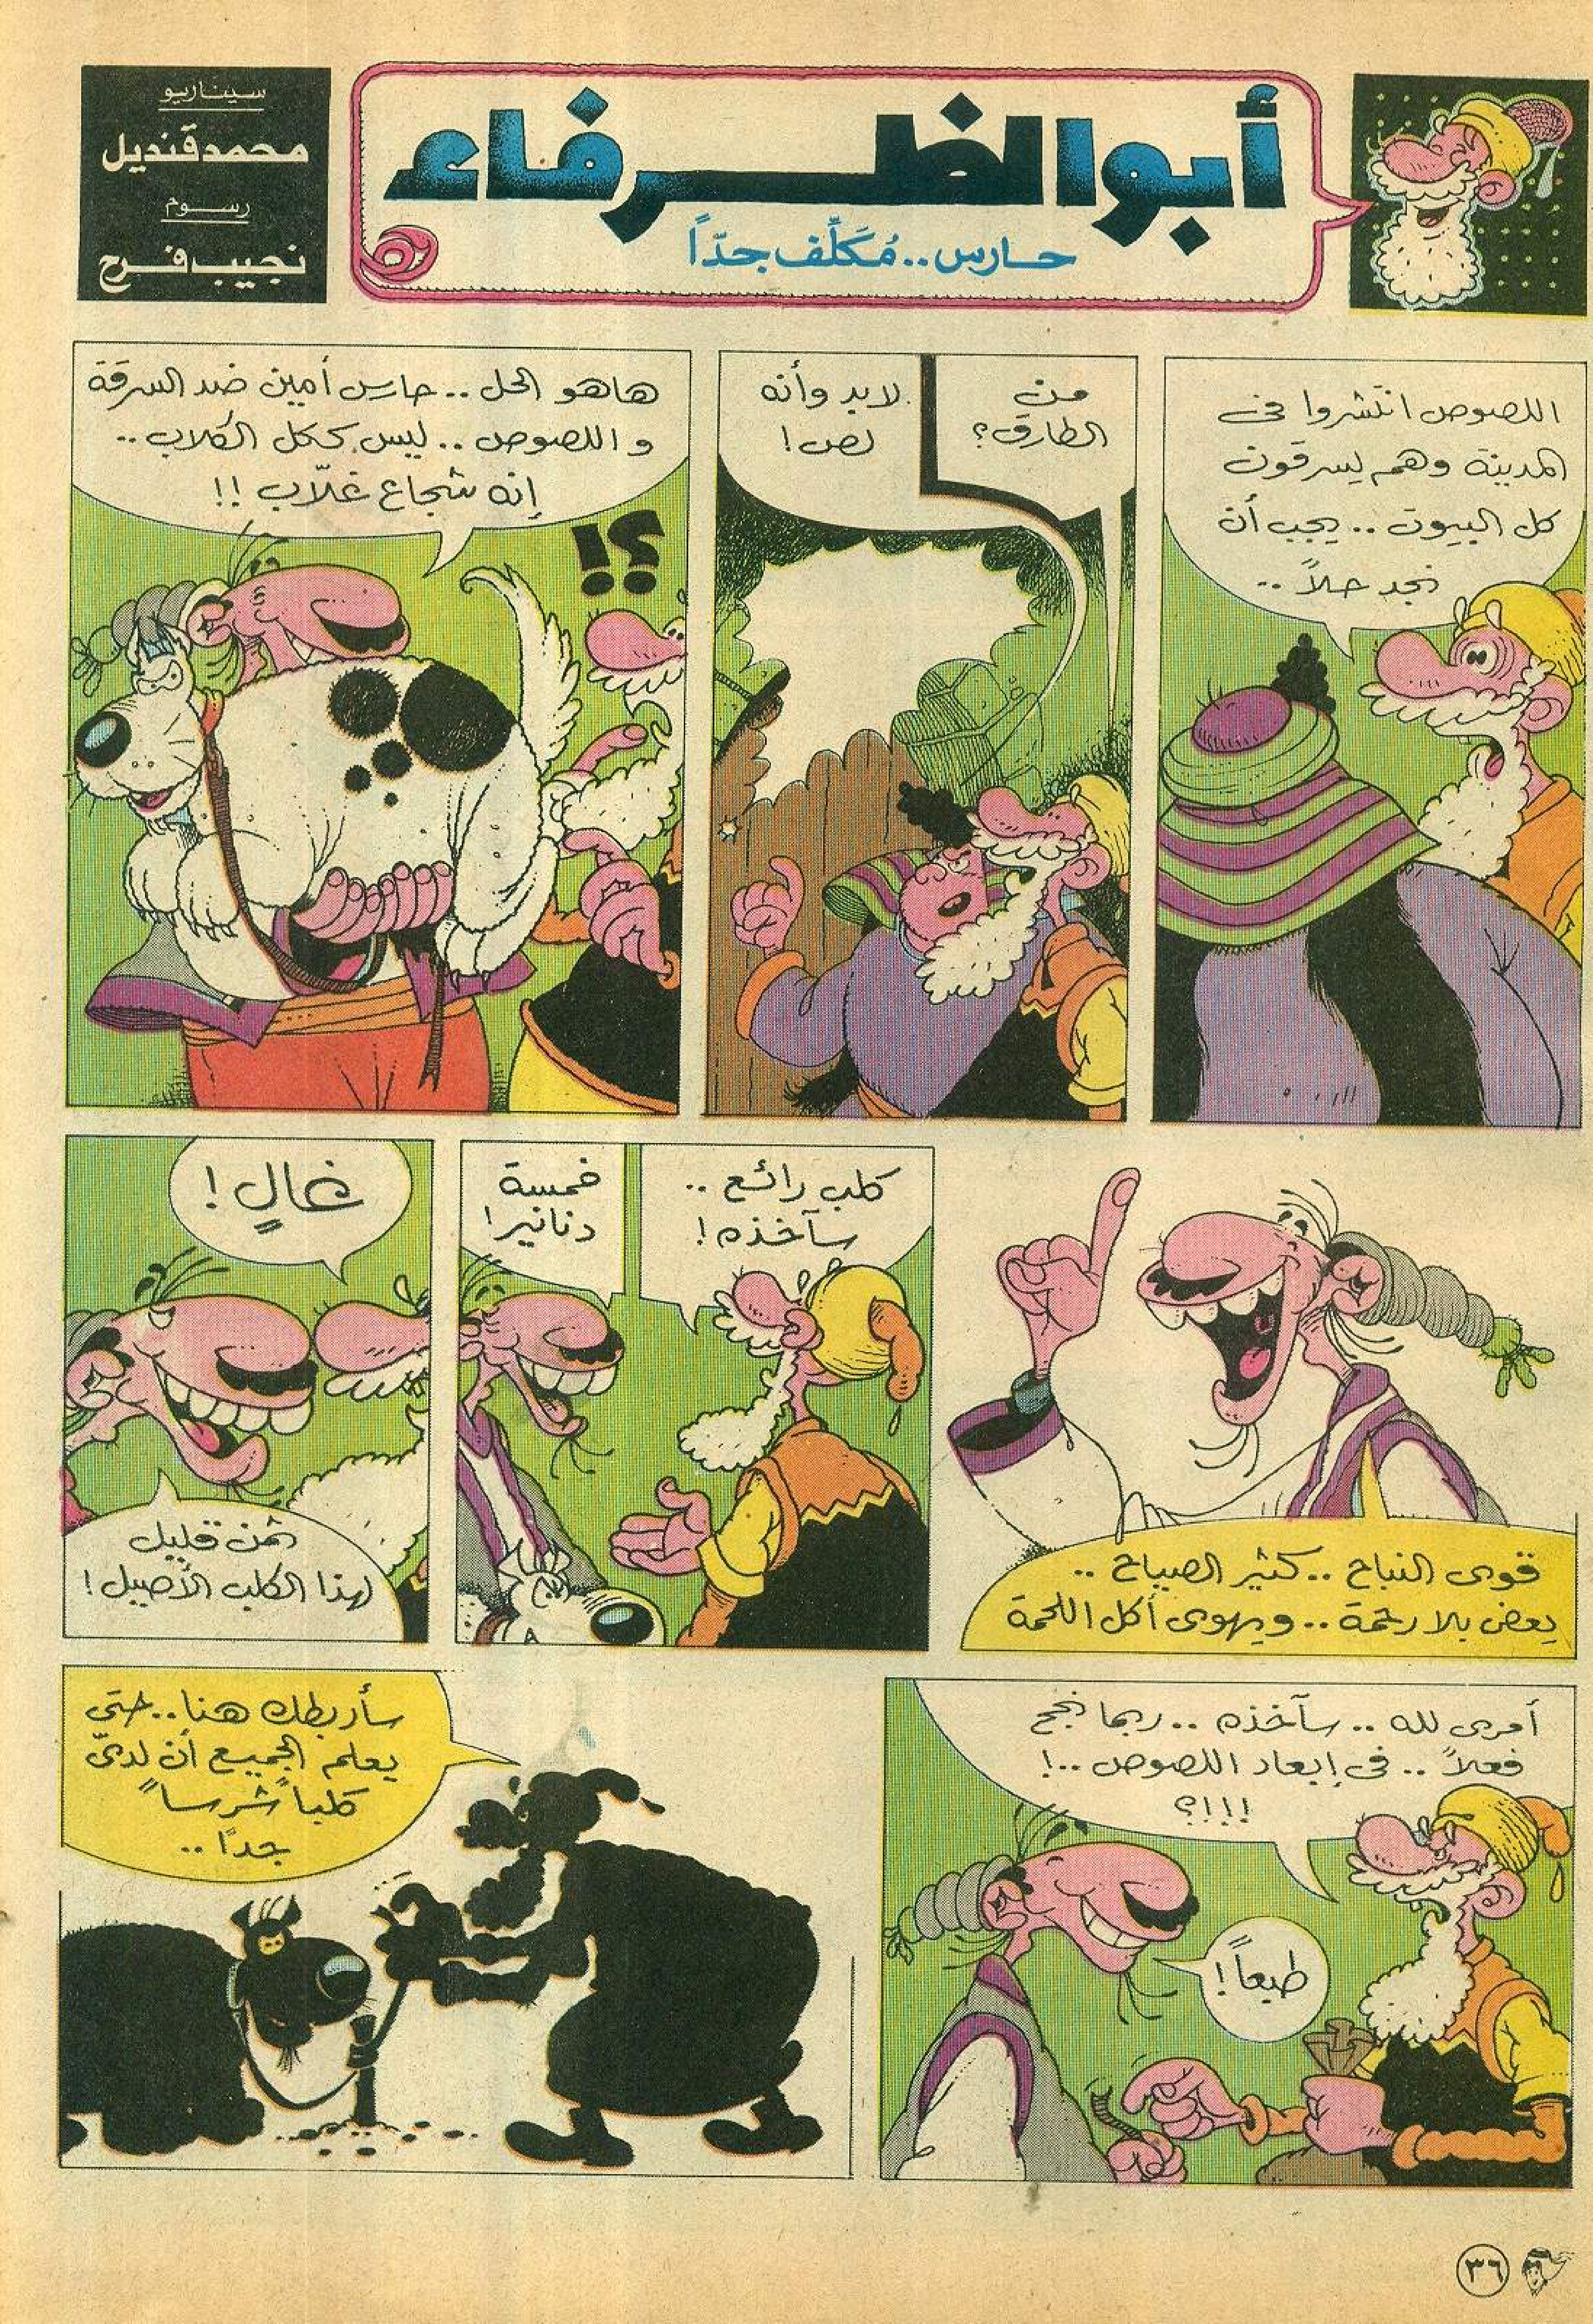 أبو الظرفاء
حارس.. مُكَلِّف جدّاً
سيناريو
محمد قنديل
رسوم
نجيب فرج
اللصوص انتشروا فى
المدينة وهم يسرقون
كل البيوت .. يجب أن
نجد حلاً ..
من
الطارق؟
لابد وأنه
لص!
هاهو الحل .. حارس أمين ضد السرقة
واللصوص .. ليس ككل الكلاب ..
إنه شجاع غلّاب !!
؟!
قوى النباح .. كثير الصياح ..
يعض بلا رحمة .. ويهوى أكل اللحمة
كلب رائع ..
سآخذه!
خمسة
دنانير!
غالٍ!
ثمن قليل
لهذا الكلب الأصيل!
أمرى لله .. سآخذه .. ربما نجح
فعلاً .. فى إبعاد اللصوص ..!
!!!؟
طبعاً!
سأربطك هنا .. حتى
يعلم الجميع أن لدىّ
كلباً "شرساً"
جداً ..
٣٦